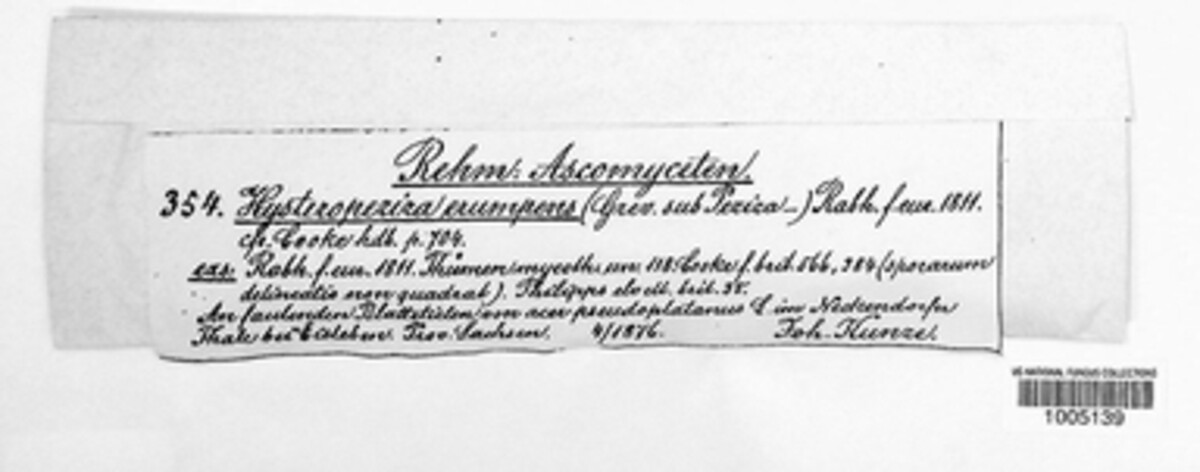 Rehm: Ascomyceten.
354. Hysteropeziza erumpens (Grev. sub Peziza _) Rabh. f. eur. 1811.
cfr. Cooke hdb. p. 704.
exs. Rabh. f. eur. 1811. Thümen mycoth. un. 118. Cooke f. brit. 566, 384 (sporarum
delineatio non quadrat). Philipps elv. brit.
An faulenden Blattstielen von acer pseudoplatanus L. im Neckendorfer
Thale bei Eisleben. Prov. Sachsen. 4/1876. Joh. Kunze.
US NATIONAL FUNGUS COLLECTIONS
1005139